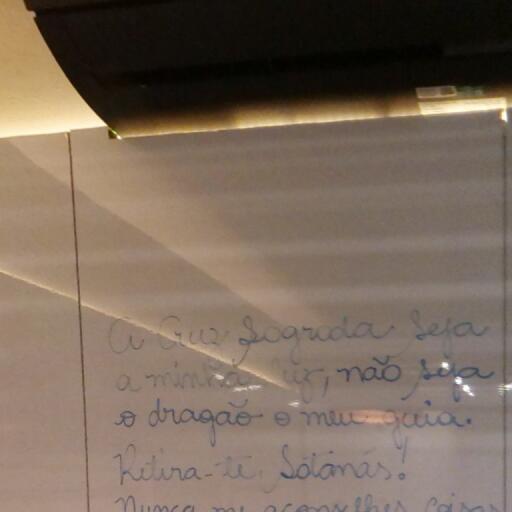 A Cruz Sagrada Seja
a minha luz, não seja
o dragão o meu guia.
Retira-te, Sátánás!
Nunca me aconselhes coisas